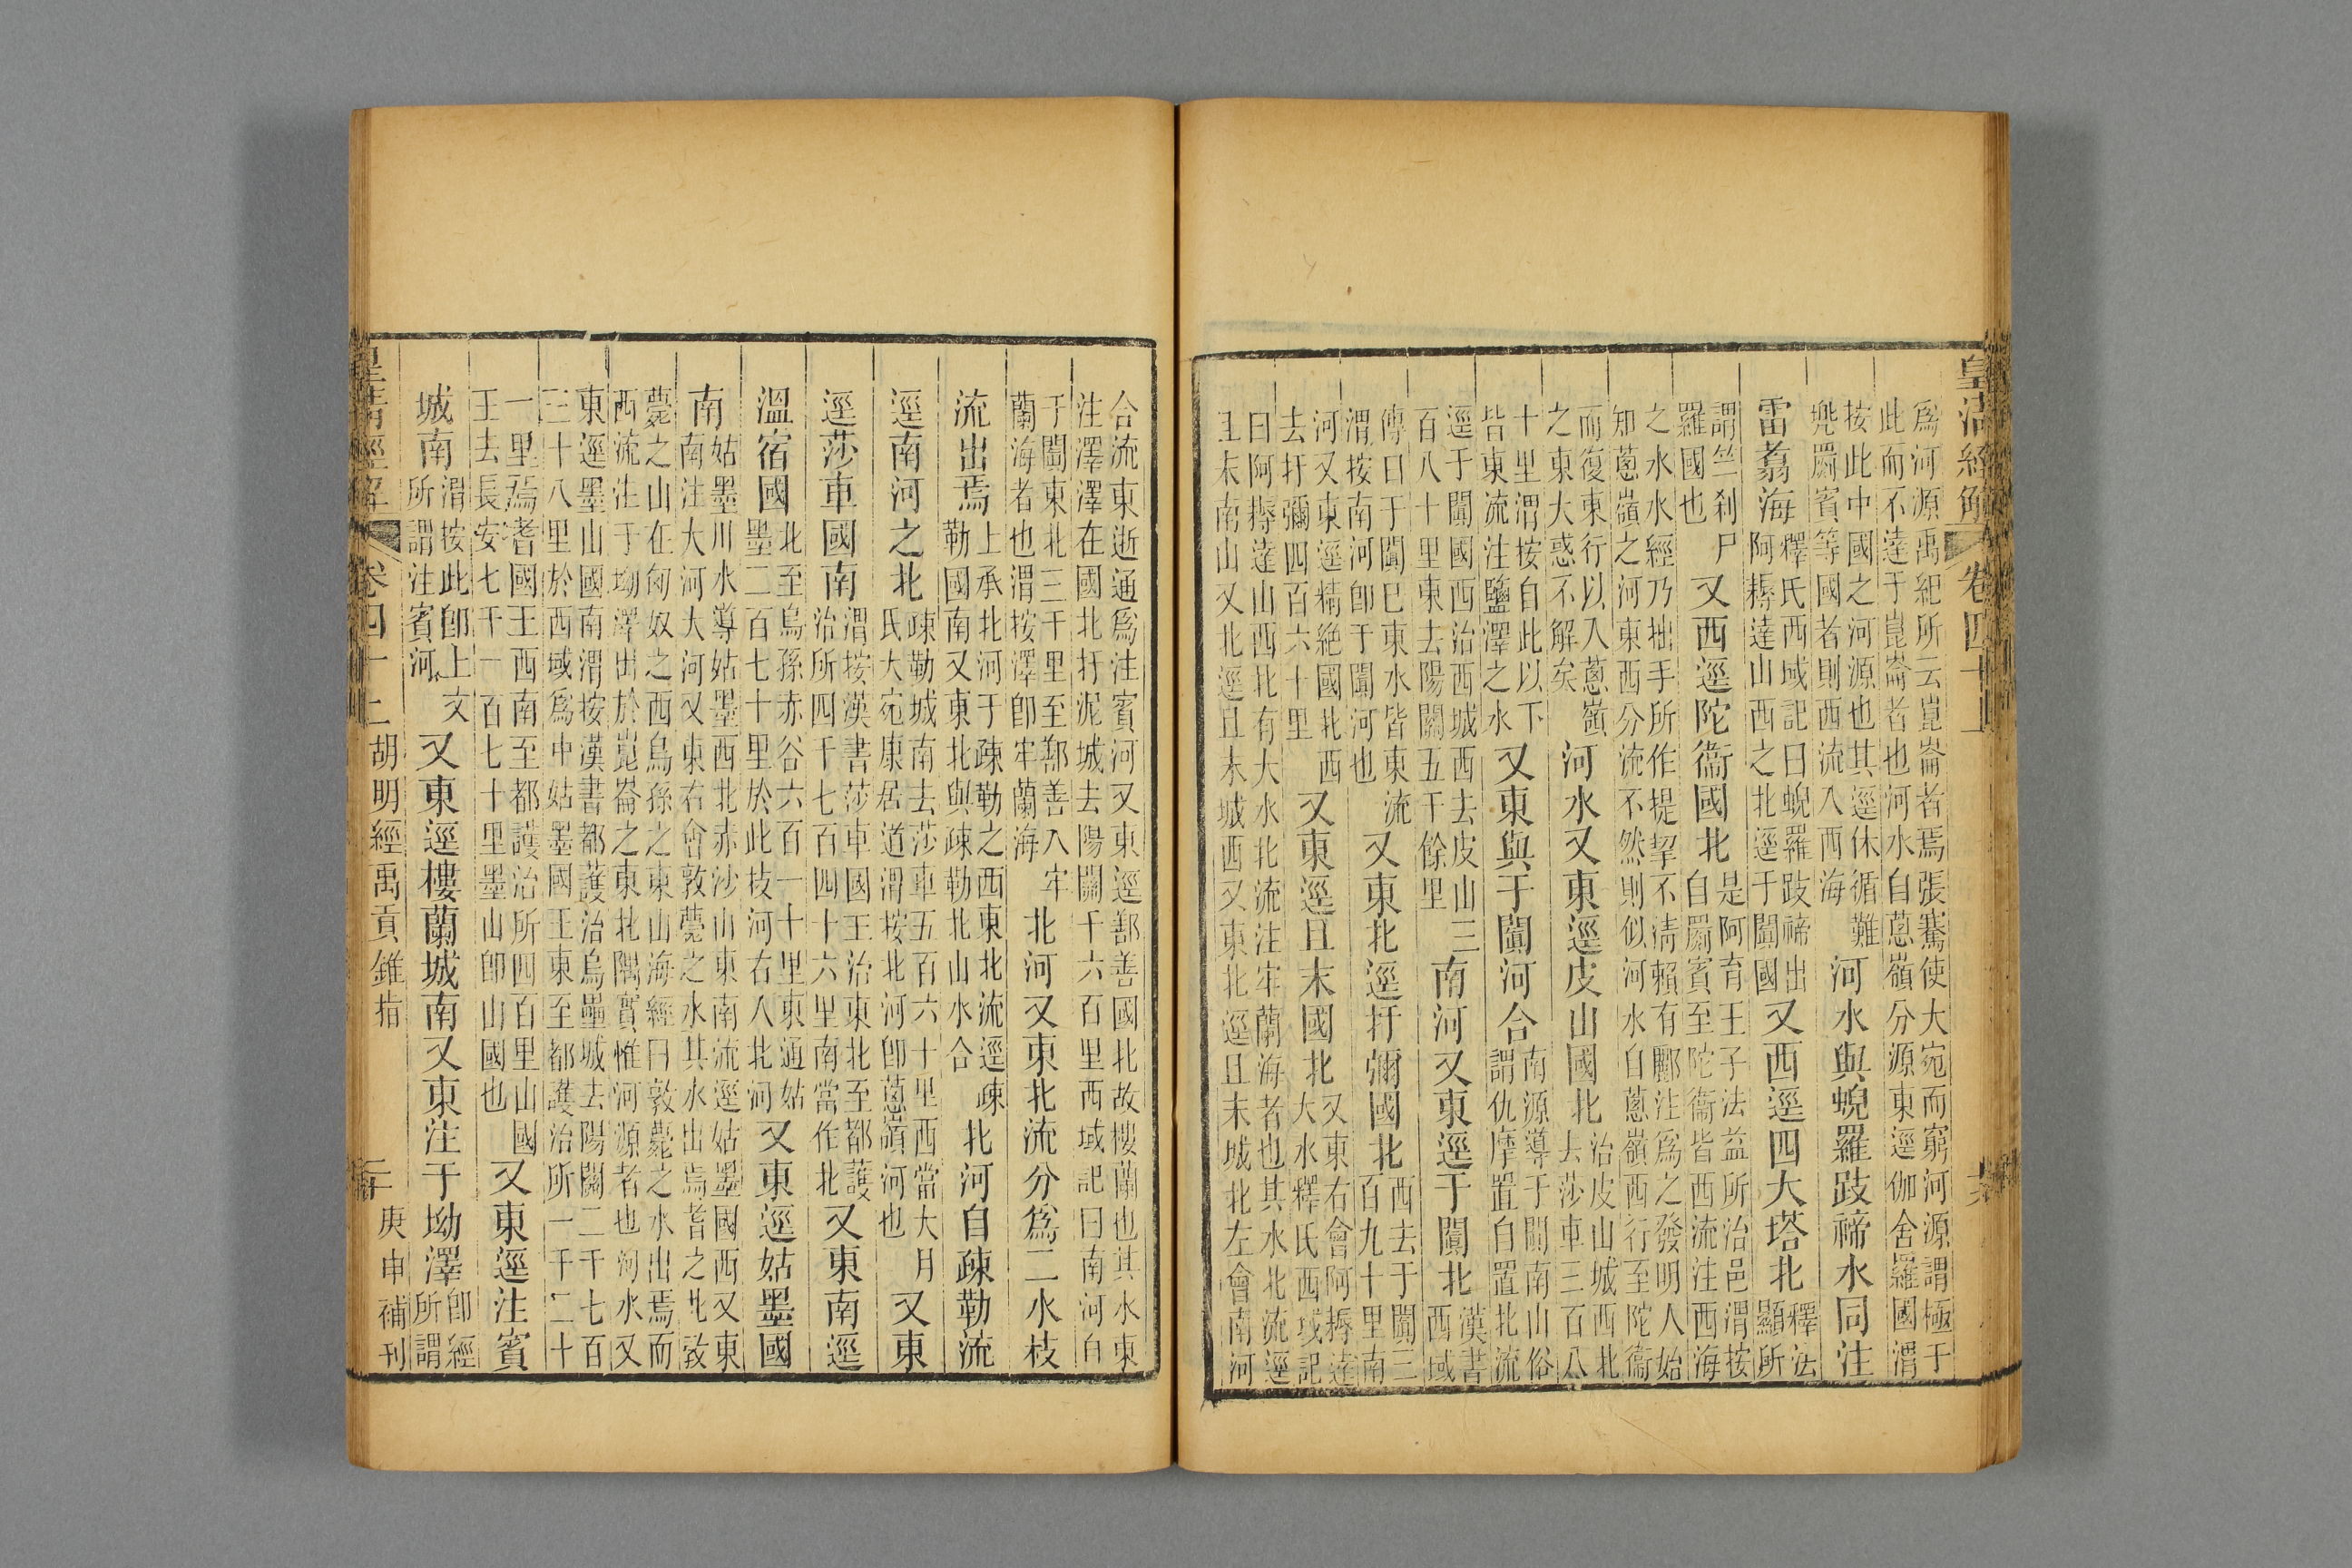 皇清經解 卷四十上
爲河源禹紀所云崑崙者焉張騫使大宛而窮河源謂極于
此而不達于崑崙者也河水自蔥嶺分源東逕伽舍羅國渭
按此中國之河源也其逕休循難
兜罽賓等國者則西流入西海
河水與蜺羅跂禘水同注
雷翥海
釋氏西域記曰蜺羅跂禘出
阿耨達山西之北逕于闐國
又西逕四大塔北
釋法
顯所
謂竺刹尸
羅國也
又西逕陀衞國北
是阿育王子法益所治邑渭按
自罽賓至陀衞皆西流注西海
之水水經乃拙手所作提挈不清賴有酈注爲之發明人始
知蔥嶺之河東西分流不然則似河水自蔥嶺西行至陀衞
而復東行以入蔥嶺
之東大惑不解矣
河水又東逕皮山國北
治皮山城西北
去莎車三百八
十里渭按自此以下
皆東流注鹽澤之水
又東與于闐河合
南源導于闐南山俗
謂仇摩置自置北流
逕于闐國西治西城西去皮山三
百八十里東去陽關五千餘里
南河又東逕于闐北
漢書
西域
傳曰于闐巳東水皆東流
渭按南河卽于闐河也
又東北逕扜彌國北
西去于闐三
百九十里南
河又東逕精絕國北西
去扜彌四百六十里
又東逕且末國北
又東右會阿耨達
大水釋氏西域記
曰阿耨達山西北有大水北流注牢蘭海者也其水北流逕
且末南山又北逕且末城西又東北逕且末城北左會南河
合流東逝通爲注賓河又東逕鄯善國北故樓蘭也其水東
注澤澤在國北扜泥城去陽關千六百里西域記曰南河自
于闐東北三千里至鄯善入牢
蘭海者也渭按澤卽牢蘭海
北河又東北流分爲二水枝
流出焉
上承北河于疎勒之西東北流逕疎
勒國南又東北與疎勒北山水合
北河自疎勒流
逕南河之北
疎勒城南去莎車五百六十里西當大月
氏大宛康居道渭按北河卽蔥嶺河也
又東
逕莎車國南
渭按漢書莎車國王治東北至都護
治所四千七百四十六里南當作北
又東南逕
溫宿國
北至烏孫赤谷六百一十里東通姑
墨二百七十里於此枝河右入北河
又東逕姑墨國
南
姑墨川水導姑墨西北赤沙山東南流逕姑墨國西又東
南注大河大河又東右會敦薨之水其水出焉耆之北敦
薨之山在匈奴之西烏孫之東山海經曰敦薨之水出焉而
西流注于坳澤出於崑崙之東北隅實惟河源者也河水又
東逕墨山國南渭按漢書都護治烏壘城去陽關二千七百
三十八里於西域爲中姑墨國王東至都護治所一千二十
一里焉耆國王西南至都護治所四百里山國
王去長安七千一百七十里墨山卽山國也
又東逕注賓
城南
渭按此卽上文
所謂注賓河
又東逕樓蘭城南又東注于坳澤
卽經
所謂
皇清經解 卷四十上 胡明經禹貢錐指 庚申補刊